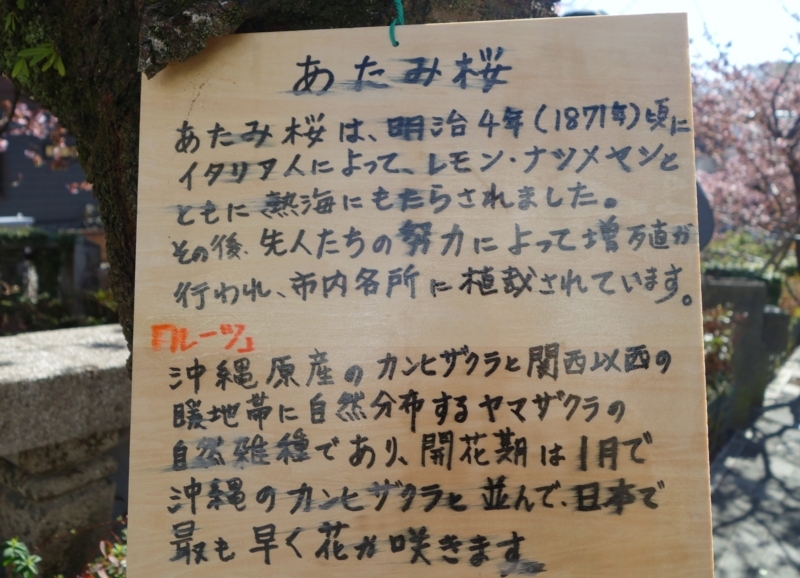 あたみ桜
あたみ桜は、明治4年(1871年)頃に
イタリア人によって、レモン・ナツメヤシと
ともに熱海にもたらされました。
その後、先人たちの努力によって増殖が
行われ、市内各所に植栽されています。
「ルーツ」
沖縄原産のカンヒザクラと関西以西の
暖地帯に自然分布するヤマザクラの
自然雑種であり、開花期は1月で
沖縄のカンヒザクラと並んで、日本で
最も早く花が咲きます